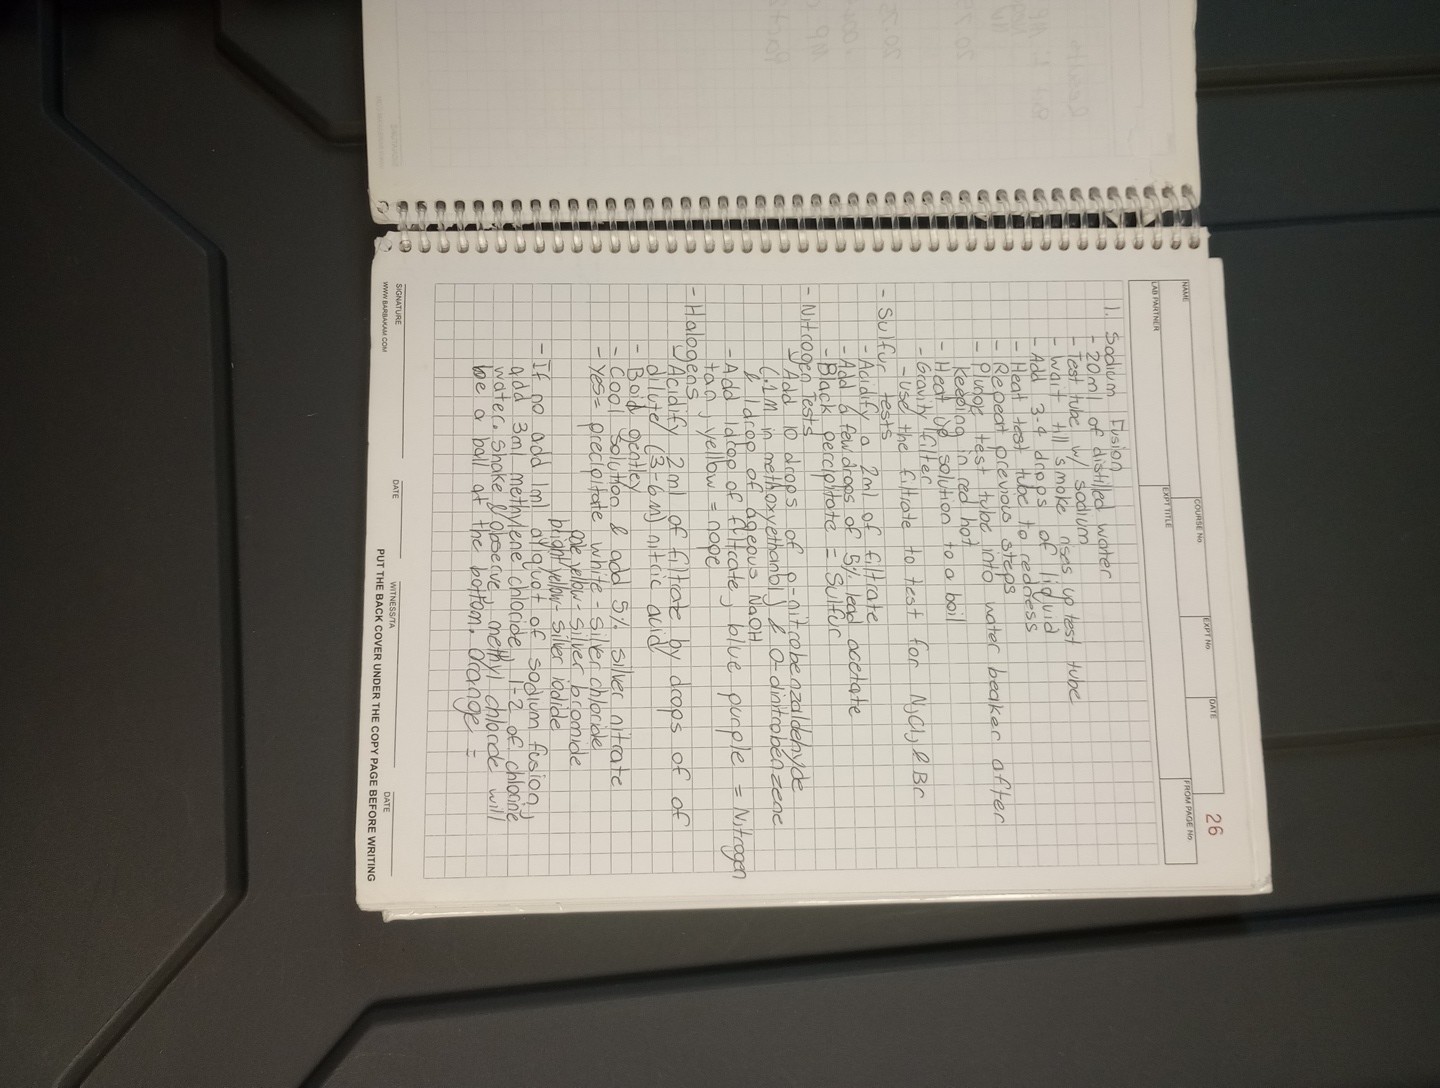 26
NAME
COURSE No.
EXPT No.
DATE
FROM PAGE No.
LAB PARTNER
EXPT TITLE
1. Sodium Fusion
- 20ml of distilled water
- Test tube w/ sodium
- Wait till smoke rises up test tube
- Add 3-4 drops of liquid
- Heat test tube to redness
- Repeat previous steps
- Plunge test tube into water beaker after
keeping in red hot
- Heat up solution to a boil
- Gravity filter
- Use the filtrate to test for N, Cl, & Br
- Sulfur tests
- Acidify a 2ml of filtrate
- Add a few drops of 5% lead acetate
- Black percipitate = Sulfur
- Nitrogen Tests
- Add 10 drops of p-nitrobenzaldehyde
(.1M in methoxyethanol) & o-dinitrobenzene
& 1 drop of aqeous NaOH
- Add 1 drop of filtrate, blue purple = Nitrogen
tan, yellow = nope
- Halogens
- Acidify 2ml of filtrate by drops of of
dilute (3-6M) nitric acid
- Boil gentley
- Cool solution & add 5% silver nitrate
- Yes = precipitate white - silver chloride
pale yellow - silver bromide
bright yellow - silver iodide
- If no add 1ml aliquot of sodium fusion,
add 3ml methylene chloride, 1-2 of chlorine
water. Shake & observe, methyl chloride will
be a ball at the bottom. Orange =
SIGNATURE
DATE
WITNESS/TA
DATE
WWW.BARBAKAM.COM
PUT THE BACK COVER UNDER THE COPY PAGE BEFORE WRITING